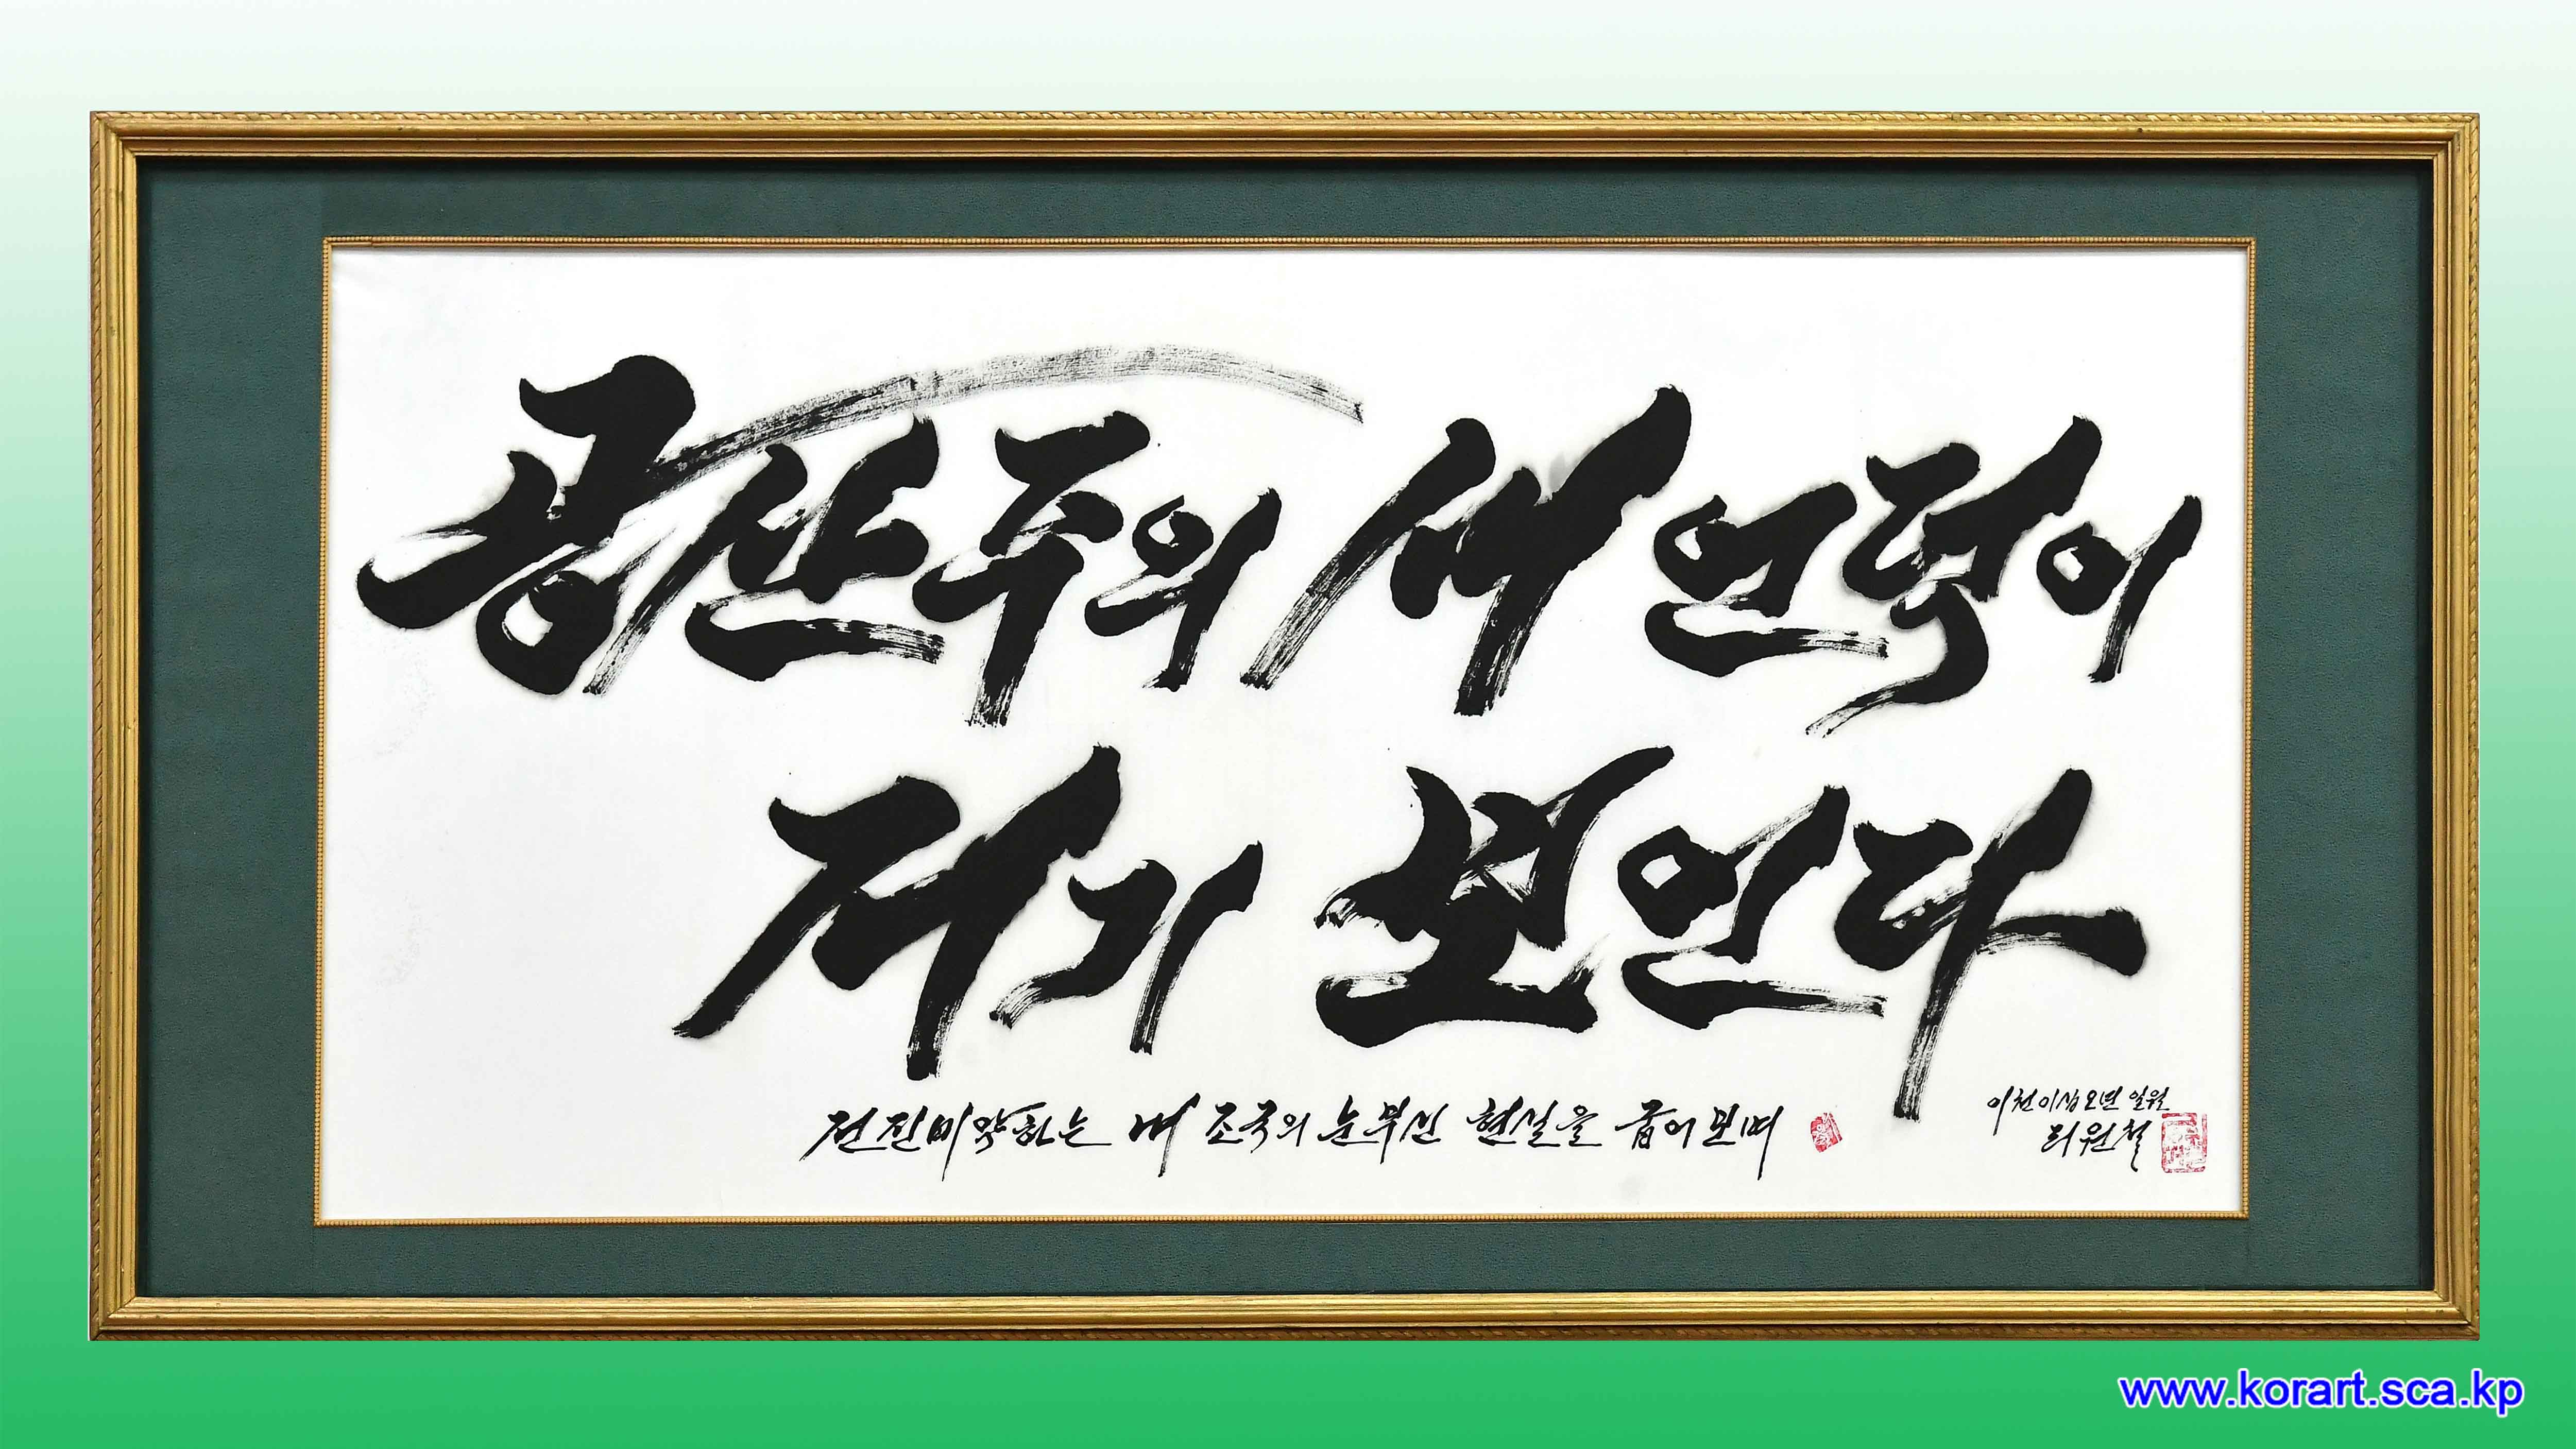 공산주의 새 언덕이
저기 보인다
전진비약하는 내 조국의 눈부신 현실을 굽어보며
이천이십오년 일월
리원철
www.korart.sca.kp